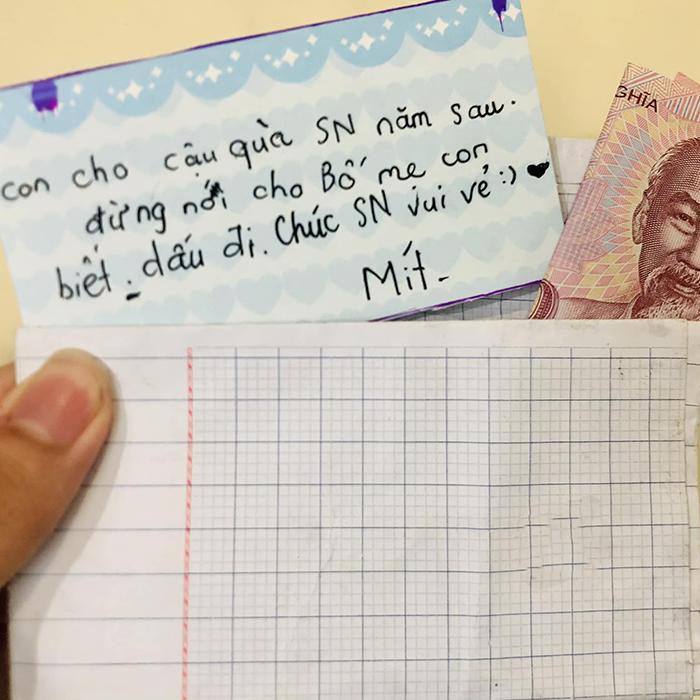 con cho cậu quà SN năm sau.
đừng nói cho Bố mẹ con
biết. dấu đi. Chúc SN vui vẻ :) ♥
Mít -
GHĨA